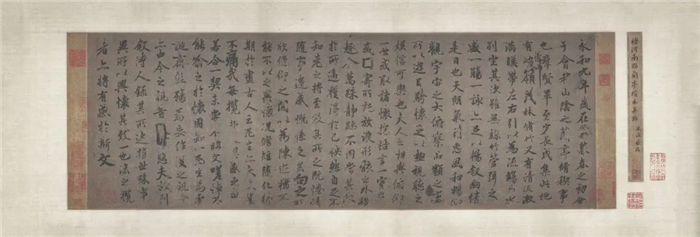 褚河南臨蘭亭絹本真跡
永和九年歲在癸丑暮春之初會
于會稽山陰之蘭亭脩稧事
也群賢畢至少長咸集此地
有崇山峻領茂林脩竹又有清流激
湍暎帶左右引以為流觴曲水
列坐其次雖無絲竹管弦之
盛一觴一詠亦足以暢敘幽情
是日也天朗氣清惠風和暢仰
觀宇宙之大俯察品類之盛
所以遊目騁懷足以極視聽之
娛信可樂也夫人之相與俯仰
一世或取諸懷抱悟言一室之內
或因寄所託放浪形骸之外雖
趣舍萬殊靜躁不同當其欣
於所遇暫得於己快然自足不
知老之將至及其所之既惓情
隨事遷感慨係之矣向之所
欣俛仰之間以為陳迹猶不
能不以之興懷況脩短隨化終
期於盡古人云死生亦大矣豈
不痛哉每攬昔人興感之由
若合一契未嘗不臨文嗟悼不
能喻之於懷固知一死生為虛
誕齊彭殤為妄作後之視今
亦由今之視昔悲夫故列
敘時人錄其所述雖世殊事
異所以興懷其致一也後之攬
者亦將有感於斯文